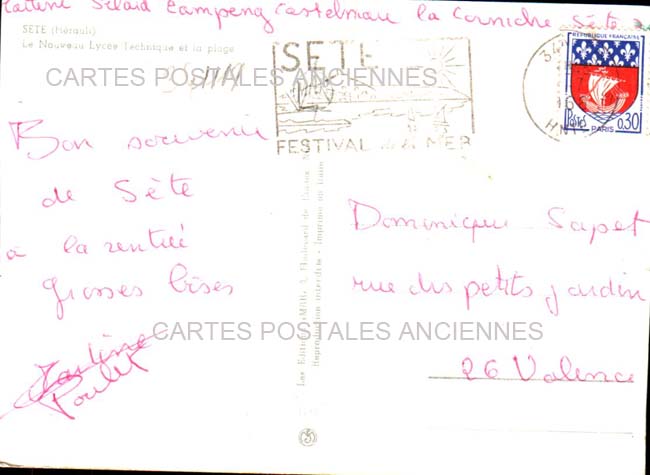 Castelnau la Corniche Sète
SETE (Hérault)
Le Nouveau Lycée Technique et la plage
CARTES POSTALES ANCIENNES
SETE
FESTIVAL de la MER
REPUBLIQUE FRANÇAISE
Postes PARIS 0,30
Bon souvenir
de Sète
à la rentrée
grosses bises
Poulet
Dominique Sapet
rue des petits jardin
26 Valence
CARTES POSTALES ANCIENNES
Reproduction interdite - Imprimé en Italie